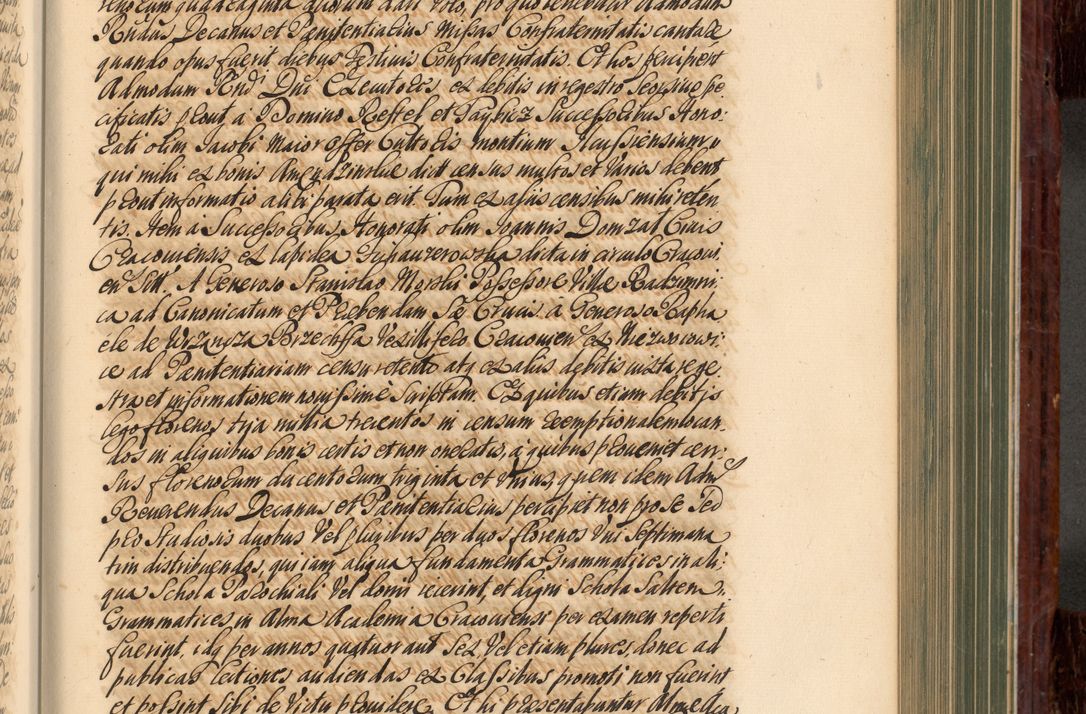 Rndus Decanus et Pænitentiarius Missas Confraternitatis cantare
quando opus fuerit diebus Festiuis Confraternitatis. Et hos percipient
Admodum Rndi Dni Executores, ex debitis in regestro seorsiue spe
cificatis prout, à Domino Reffel et Taybicz Successoribus Hono-
rati olim Jacobi Maior offer Custodis montium
qui mihi ex bonis dict census multos et varios debent
prout informatio alibi parata erit. Tum ex alijs censibus mihi reten
tis. Item à Successoribus Honorati olim Joannis Domzat Ciuis
Cracouiensis ex lapidea dicta in circulo Cracoui
en sitt. A Generoso Stanislao Morski Possessore Villæ Radzimni
ca ad Canonicatum et Præbendam Sæ Crucis à Generoso Rapha
ele de Brzechffa Vexillifero Cracouien ex
ce ad Pænitentiariam censu retento atq ex alijs debitis iuxta rege
stra et informationem nouissimè scriptam. Ex quibus etiam debitis
lego florenos tria millia trecentos in censum reemptionalem locan
dos in aliquibus bonis certis et non oneratis, à quibus proueniet cen-
sus florenorum ducentorum triginta et vnius, quem idem Adm
Reuerendus Decanus et Pænitentiarius percipiet non pro se sed
pro studiosis duobus vel pluribus per duos florenos vni septimana
tim distribuendos, qui iam aliqua fundamenta Grammatices in ali-
qua Schola Parochiali vel domi iecerint, et digni Schola saltem
Grammatices, in Alma Academia Cracouiensi per examen reperti
fuerint, idq per annos quatuor aut sex vel etiam plures, donec ad
publicas lectiones audiendas ex Classibus promoti non fuerint
et possint sibi de victu prouidere. Et hi præsentabuntur